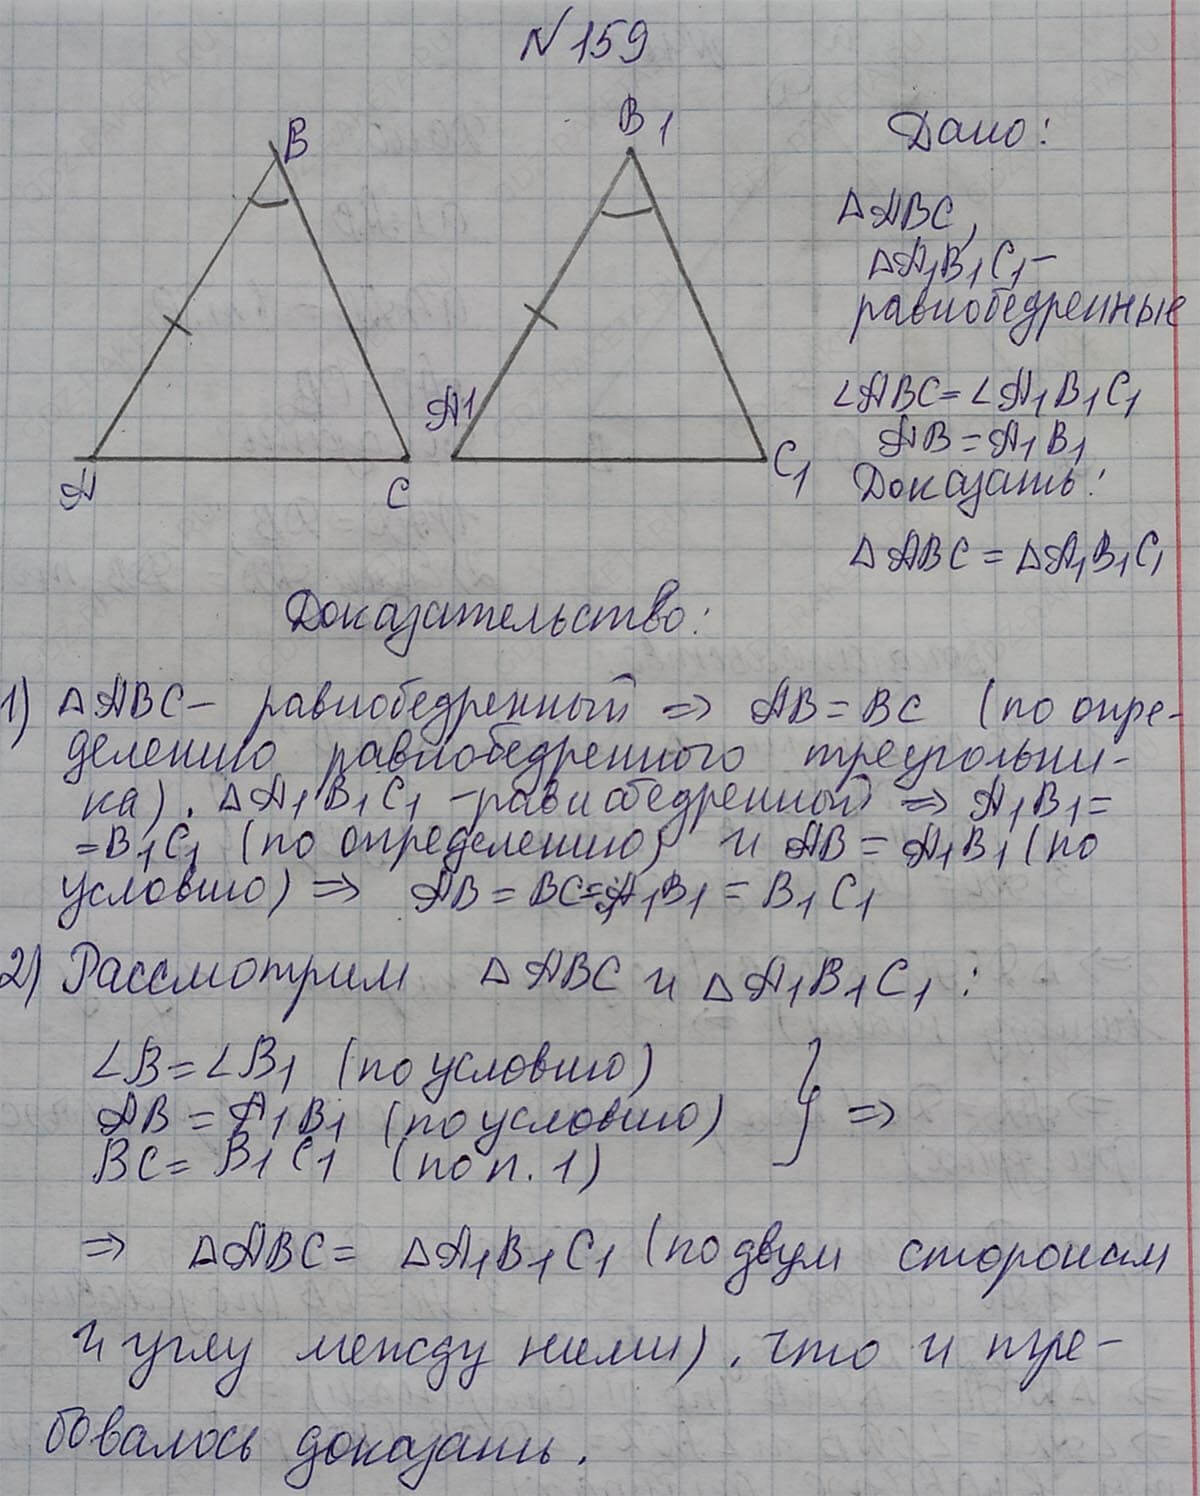 N 159
B
B1
A
C
A1
C1
Дано:
△ABC,
△A1B1C1 –
равнобедренные
∠ABC = ∠A1B1C1
AB = A1B1
Доказать:
△ABC = △A1B1C1
Доказательство:
1) △ABC – равнобедренный ⇒ AB = BC (по опре-
делению равнобедренного треугольни-
ка). △A1B1C1 – равнобедренный ⇒ A1B1 =
= B1C1 (по определению) и AB = A1B1 (по
условию) ⇒ AB = BC = A1B1 = B1C1
2) Рассмотрим △ABC и △A1B1C1 :
∠B = ∠B1 (по условию)
AB = A1B1 (по условию) } ⇒
BC = B1C1 (по п. 1)
⇒ △ABC = △A1B1C1 (по двум сторонам
и углу между ними), что и тре-
бовалось доказать.